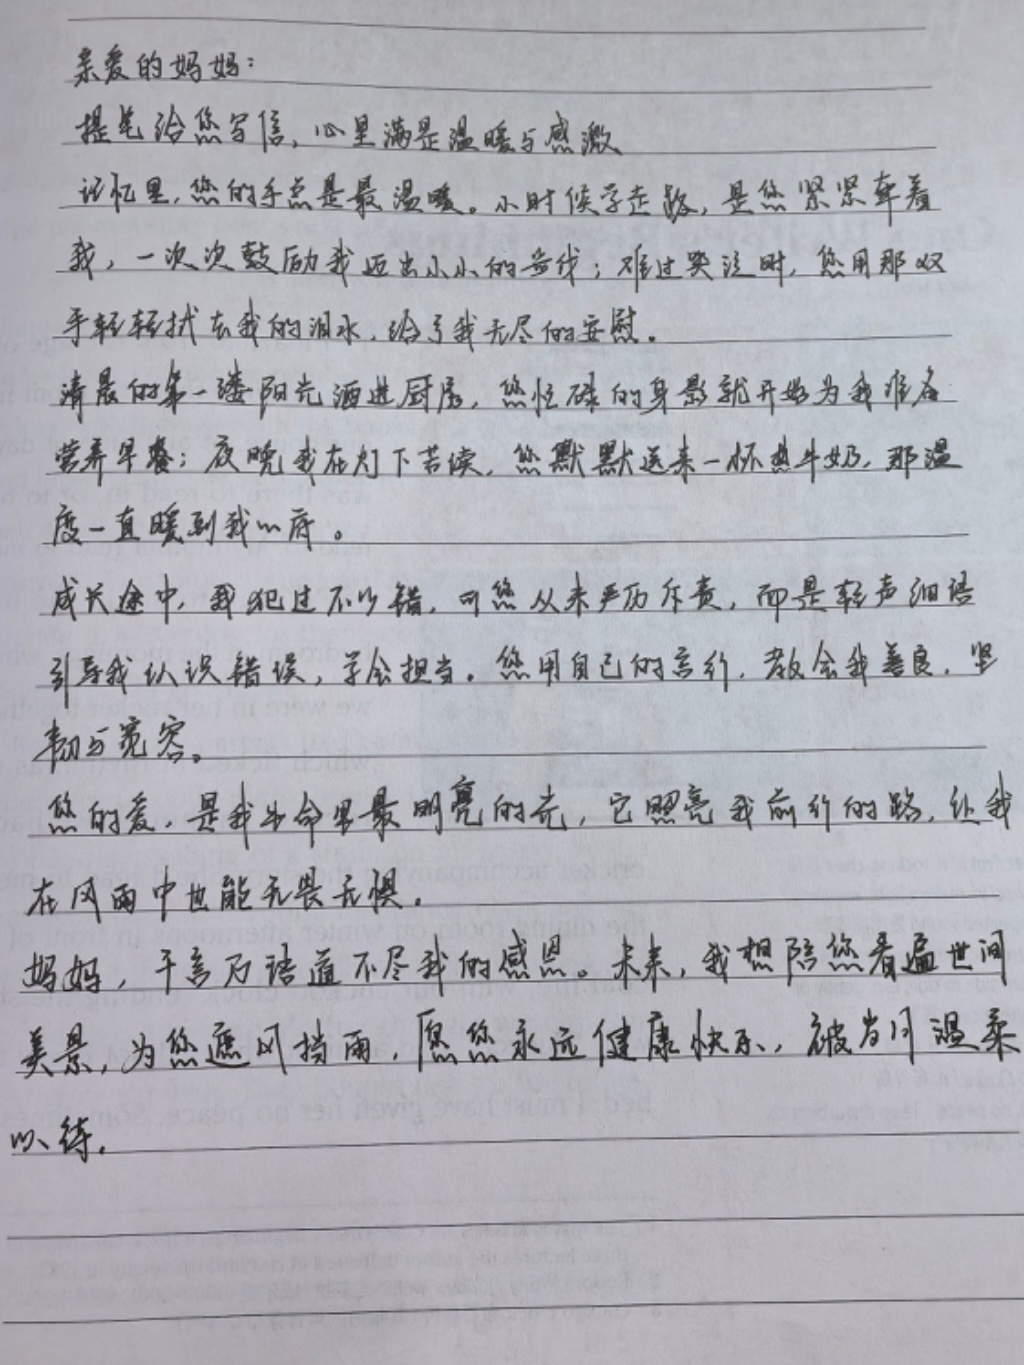 亲爱的妈妈：
提笔给您写信，心里满是温暖与感激
记忆里，您的手总是最温暖。小时候学走路，是您紧紧牵着
我，一次次鼓励我迈出小小的步伐；难过哭泣时，您用那双
手轻轻拭去我的泪水，给了我无尽的安慰。
清晨的第一缕阳光洒进厨房，您忙碌的身影就开始为我准备
营养早餐；夜晚我在灯下苦读，您默默送来一杯热牛奶，那温
度一直暖到我心底。
成长途中，我犯过不少错，可您从未严厉斥责，而是轻声细语
引导我认识错误，学会担当。您用自己的言行，教会我善良、坚
韧与宽容。
您的爱，是我生命里最明亮的光，它照亮我前行的路，让我
在风雨中也能无畏无惧。
妈妈，千言万语道不尽我的感恩。未来，我想陪您看遍世间
美景，为您遮风挡雨，愿您永远健康快乐，被岁月温柔
以待。